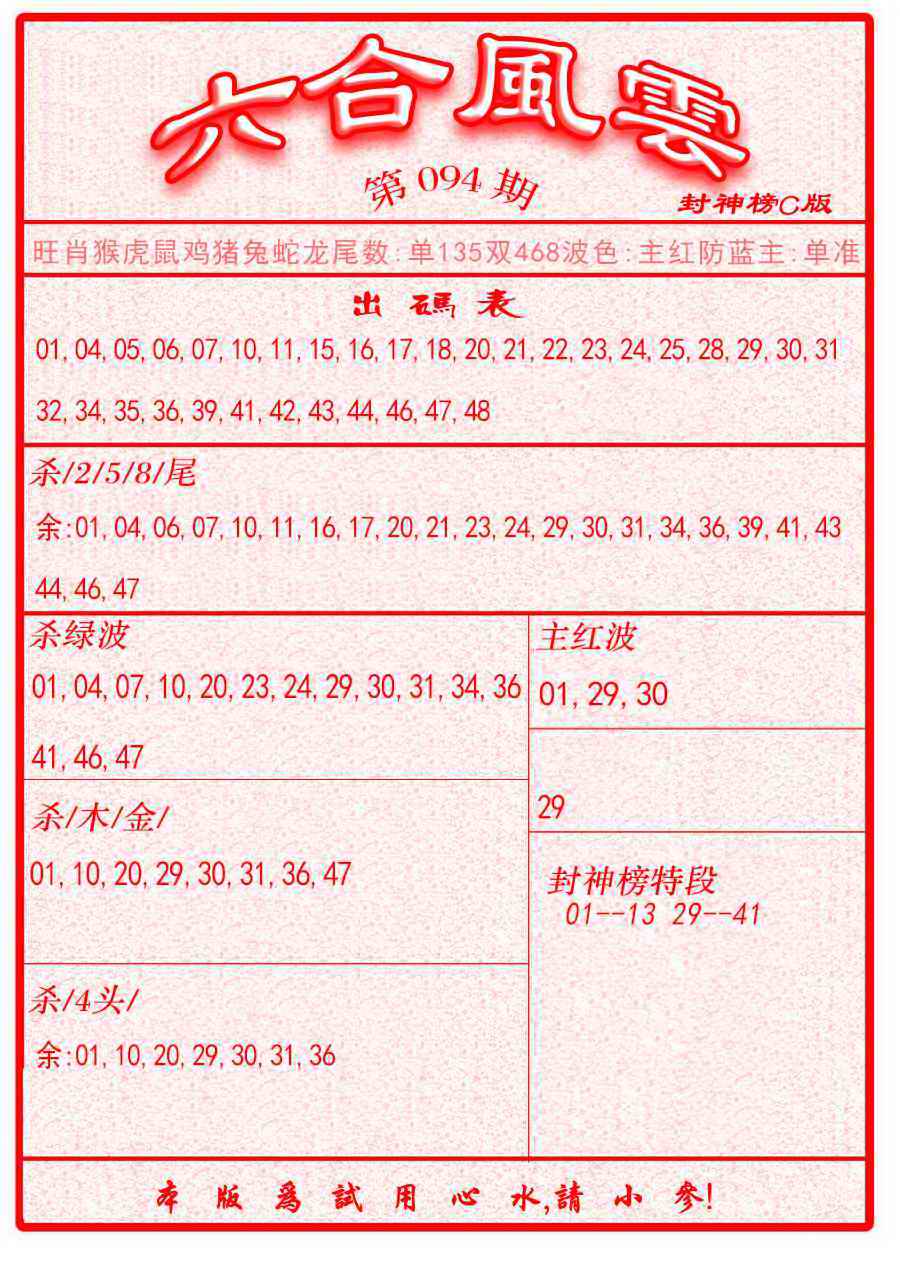 六合風雲
第094期
封神榜C版
旺肖猴虎鼠鸡猪兔蛇龙尾数:单135双468波色:主红防蓝主:单准
出碼表
01,04,05,06,07,10,11,15,16,17,18,20,21,22,23,24,25,28,29,30,31
32,34,35,36,39,41,42,43,44,46,47,48
杀/2/5/8/尾
余:01,04,06,07,10,11,16,17,20,21,23,24,29,30,31,34,36,39,41,43
44,46,47
杀绿波
01,04,07,10,20,23,24,29,30,31,34,36
41,46,47
主红波
01,29,30
29
杀/木/金/
01,10,20,29,30,31,36,47
封神榜特段
01--13 29--41
杀/4头/
余:01,10,20,29,30,31,36
本版爲試用心水,請小參!